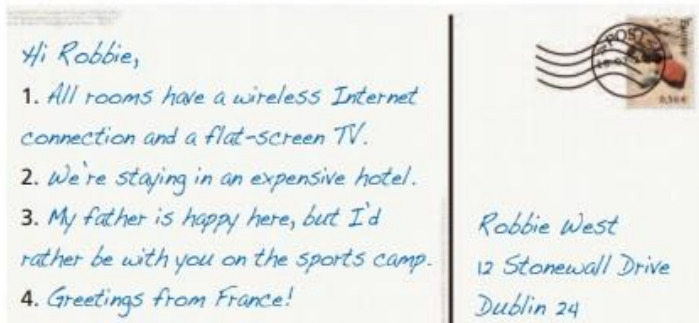 Hi Robbie,
1. All rooms have a wireless Internet
connection and a flat-screen TV.
2. We're staying in an expensive hotel.
3. My father is happy here, but I'd
rather be with you on the sports camp.
4. Greetings from France!
POST
0,56€
Robbie West
12 Stonewall Drive
Dublin 24